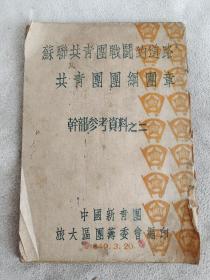 蘇聯共青團戰鬪的道路
共青團團綱團章
幹部參考資料之二
中國新青團
旅大區團籌委會編印
1949.3.20